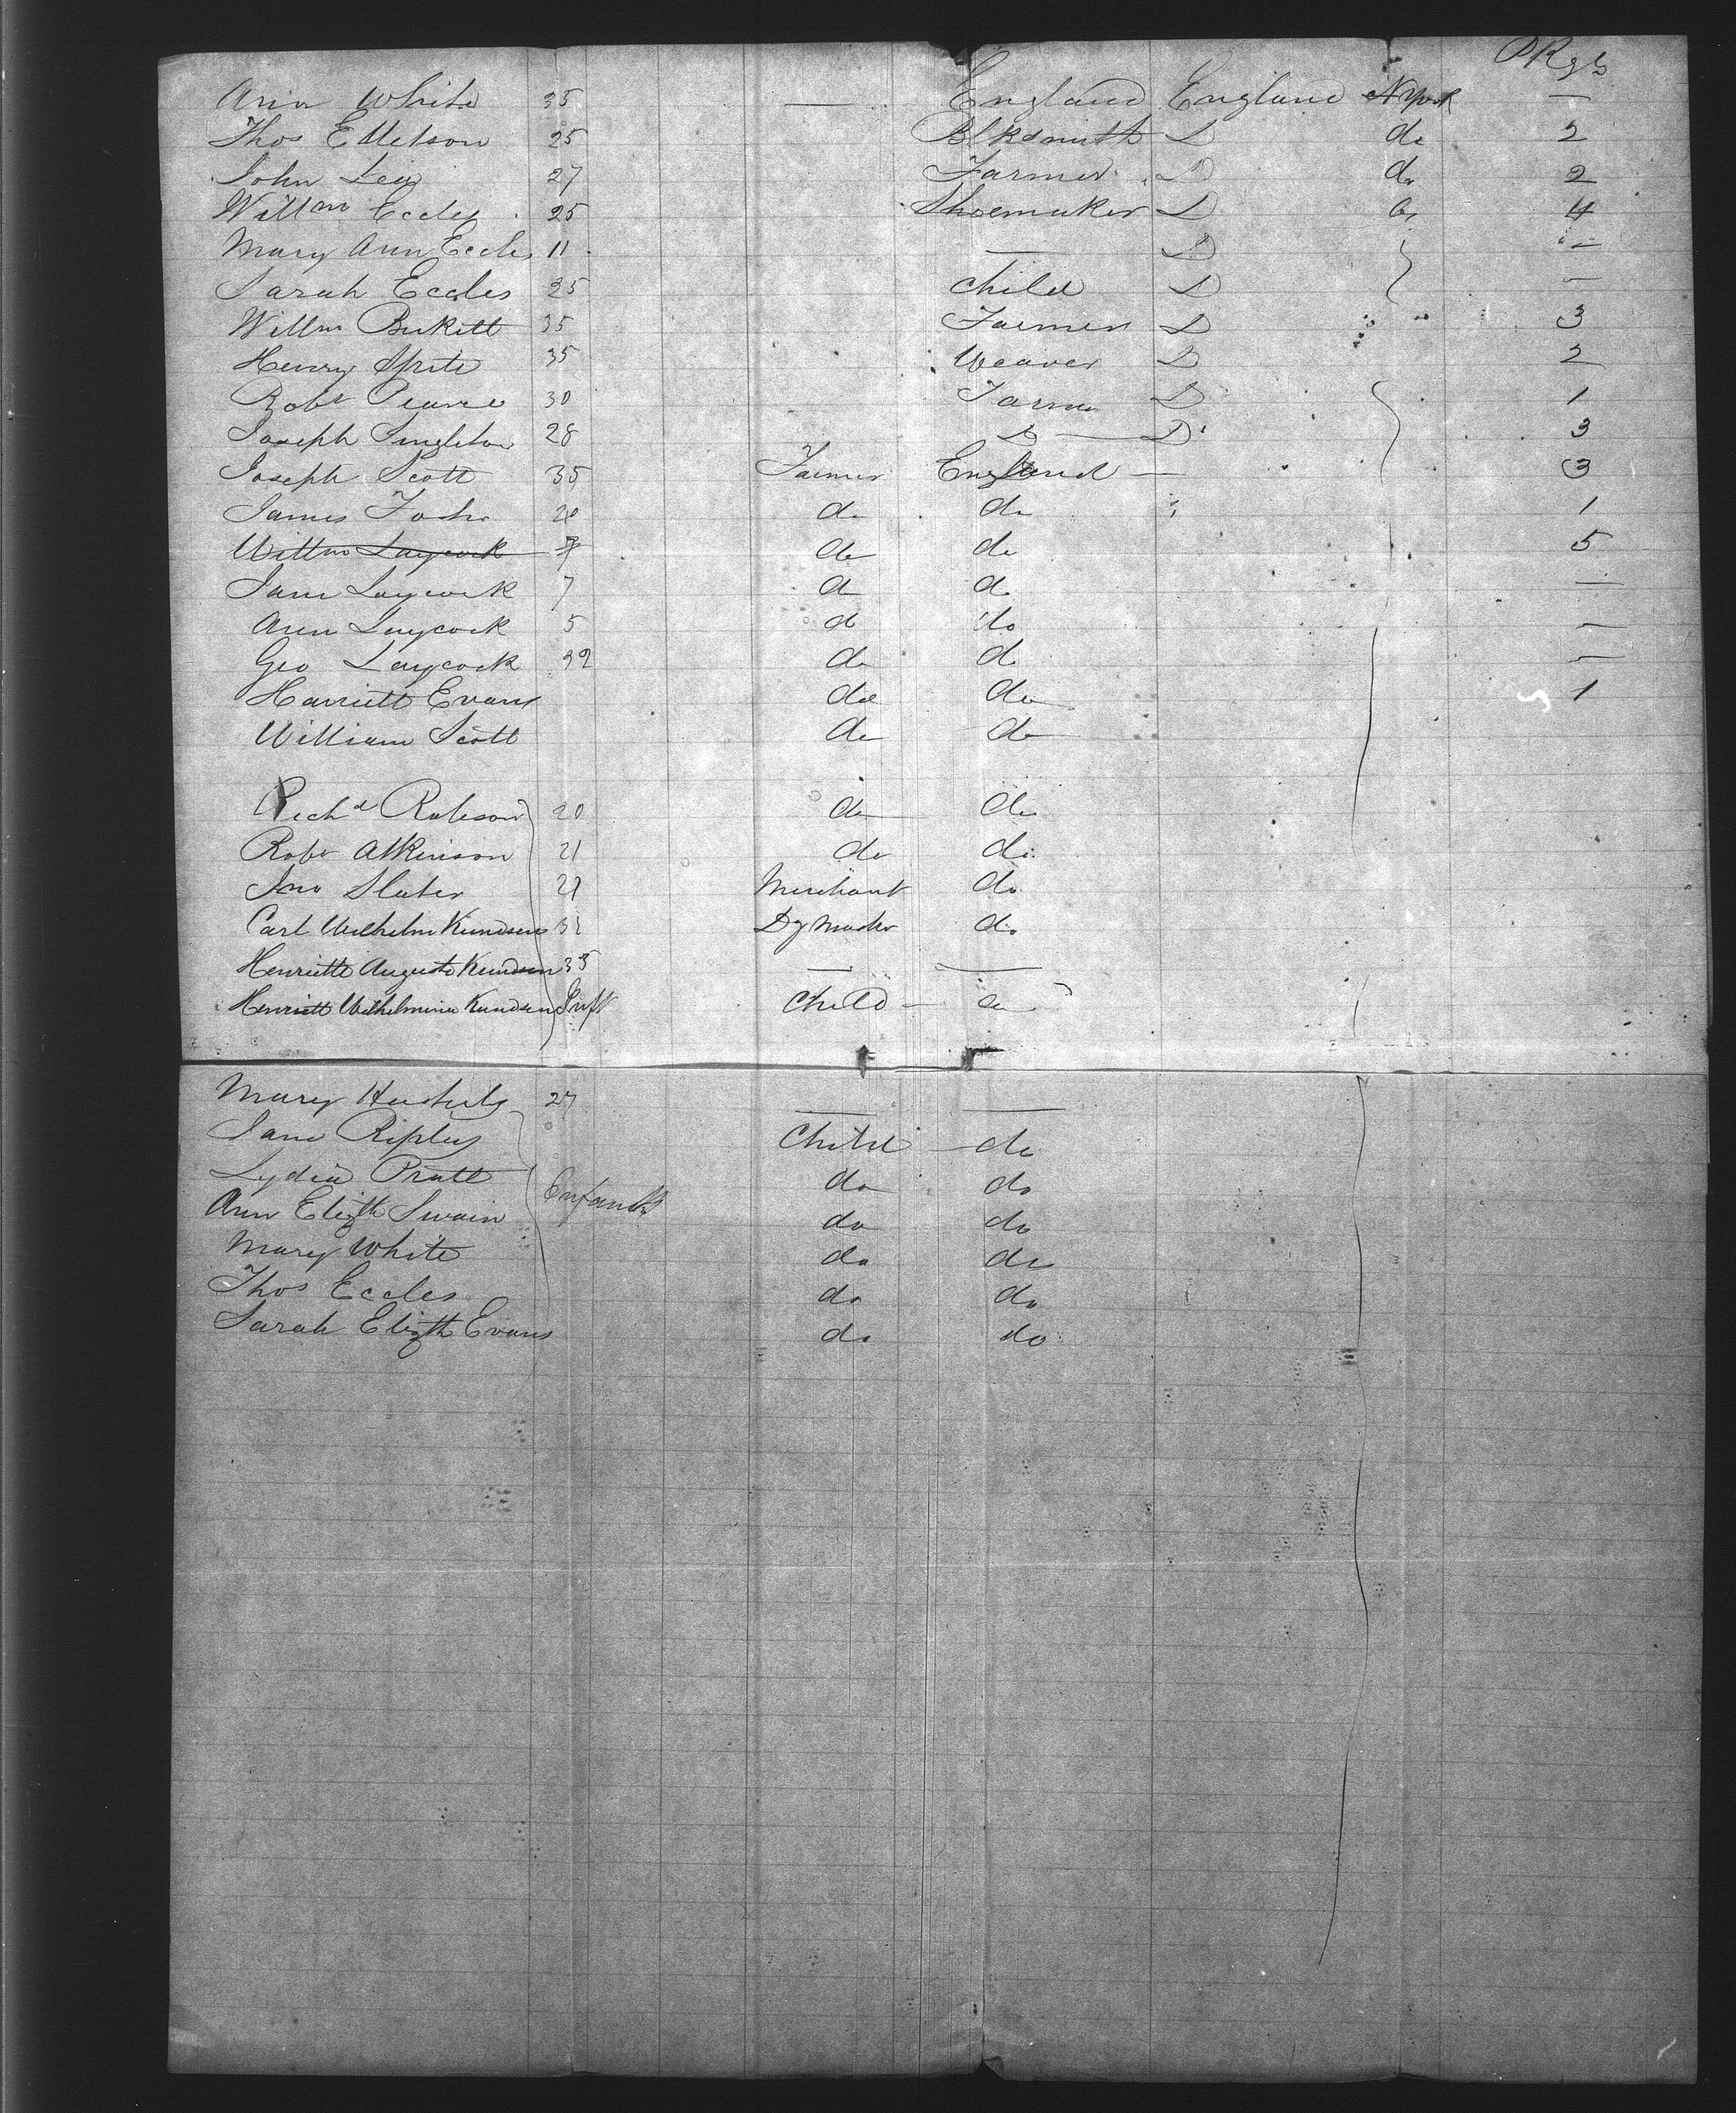 PKgs
Ann White 35 — England England N York —
Thos E Metson 25 Blksmith D do 2
John Ley 27 Farmer D do 2
Willm Eccles 25 Shoemaker D do 4
Mary Ann Eccles 11 — D —
Sarah Eccles 25 child D —
Willm Birkett 35 Farmer D 3
Henry Sprite 35 Weaver D 2
Robt Pearce 30 Farmer D 1
Joseph Singleton 28 D — D 3
Joseph Scott 35 Farmer England — 3
James 20 do do 1
Willm Laycock do do 5
Jane Laycock 7 do do —
Ann Laycock 5 do do —
Geo Laycock 32 do do —
Harriett Evans do do 1
William Scott do do
Richd Robeson 20 do do
Robt Atkinson 21 do do
Jno Slater 27 Merchant do
Carl Wilhelm Kundsen 31 do
Henriette Auguste Kundsen 33 — —
Henriett Wilhelmina Kundsen Inft Child — do
Mary 27 — —
Jane Ripley Child — do
Lydia Pratt do do
Ann Elizth Swain Enfants do do
Mary White do do
Thos Eccles do do
Sarah Elizth Evans do do